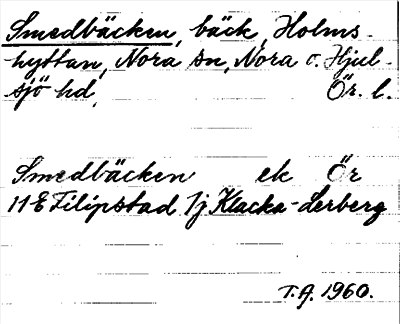 Smedbäcken, bäck, Holms-
hyttan, Nora sn, Nora o. Hjul-
sjö hd, Ör. l.
Smedbäcken ek Ör
11E Filipstad 1j Klacka-Lerberg
T.A. 1960.